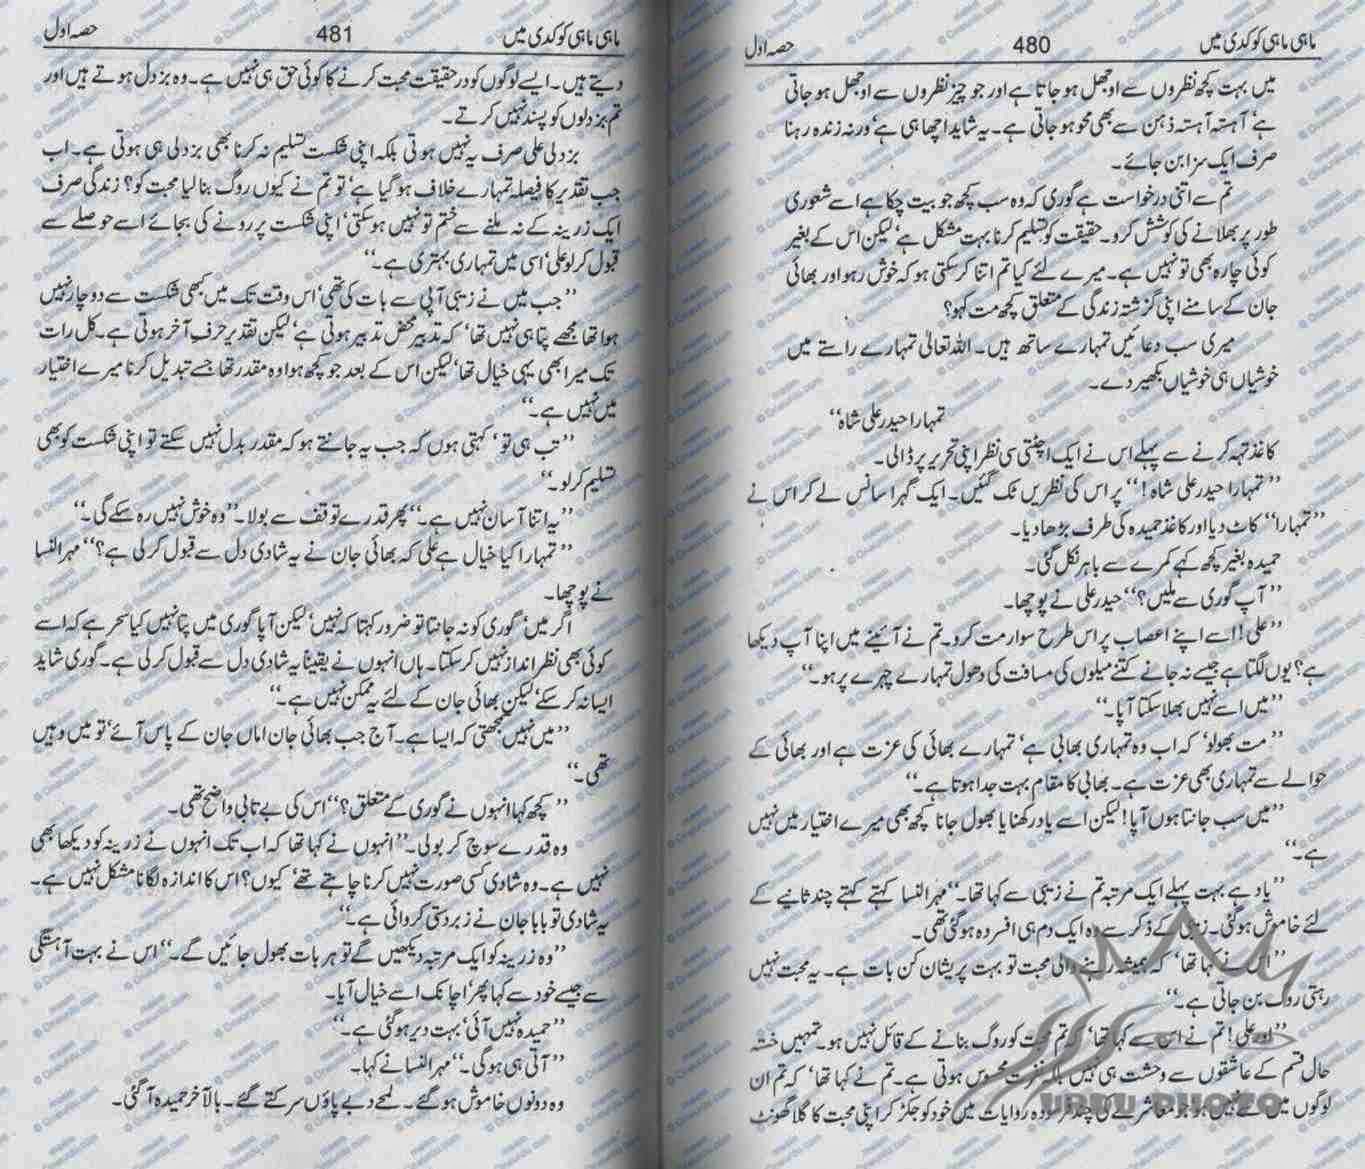 ماہی ماہی کوکدی میں 480 حصہ اول
میں بہت کچھ نظروں سے اوجھل ہو جاتا ہے اور جو چیز نظروں سے اوجھل ہو جاتی
ہے’ آہستہ آہستہ ذہن سے بھی محو ہو جاتی ہے۔ یہ شاید اچھا ہی ہے’ ورنہ زندہ رہنا
صرف ایک سزا بن جائے۔
تم سے اتنی درخواست ہے گوری کہ وہ سب کچھ جو بیت چکا ہے اسے شعوری
طور پر بھلانے کی کوشش کرو۔ حقیقت کو تسلیم کرنا بہت مشکل ہے’ لیکن اس کے بغیر
کوئی چارہ بھی تو نہیں ہے۔ میرے لئے کیا تم اتنا کر سکتی ہو کہ خوش رہو اور بھائی
جان کے سامنے اپنی گزشتہ زندگی کے متعلق کچھ مت کہو؟
میری سب دعائیں تمہارے ساتھ ہیں۔ اللہ تعالیٰ تمہارے راستے میں
خوشیاں ہی خوشیاں بکھیر دے۔
تمہارا حیدر علی شاہ‘‘
کاغذ تہہ کرنے سے پہلے اس نے ایک اچٹتی سی نظر اپنی تحریر پر ڈالی۔
’’تمہارا حیدر علی شاہ!‘‘ پر اس کی نظریں ٹک گئیں۔ ایک گہرا سانس لے کر اس نے
’’تمہارا‘‘ کاٹ دیا اور کاغذ حمیدہ کی طرف بڑھا دیا۔
حمیدہ بغیر کچھ کہے کمرے سے باہر نکل گئی۔
’’آپ گوری سے ملیں؟‘‘ حیدر علی نے پوچھا۔
’’علی! اسے اپنے اعصاب پر اس طرح سوار مت کرو۔ تم نے آئینے میں اپنا آپ دیکھا
ہے؟ یوں لگتا ہے جیسے نہ جانے کتنے میلوں کی مسافت کی دھول تمہارے چہرے پر ہو۔‘‘
’’میں اسے نہیں بھلا سکتا آپا۔‘‘
’’مت بھولو’ کہ اب وہ تمہاری بھابی ہے’ تمہارے بھائی کی عزت ہے اور بھائی کے
حوالے سے تمہاری بھی عزت ہے۔ بھابی کا مقام بہت جدا ہوتا ہے۔‘‘
’’میں سب جانتا ہوں آپا! لیکن اسے یاد رکھنا یا بھول جانا کچھ بھی میرے اختیار میں نہیں
ہے۔‘‘
’’یاد ہے بہت پہلے ایک مرتبہ تم نے زیبی سے کہا تھا۔‘‘ مہر النسا کہتے کہتے چند ثانیے کے
لئے خاموش ہو گئی۔ زیبی کے ذکر سے وہ ایک دم ہی افسردہ ہو گئی تھی۔
’’اس نے کہا تھا’ کہ ہمیشہ رہنے والی محبت تو بہت پریشان کن بات ہے۔ یہ محبت نہیں
رہتی روگ بن جاتی ہے۔‘‘
’’اور علی! تم نے اس سے کہا تھا’ کہ تم محبت کو روگ بنانے کے قائل نہیں ہو۔ تمہیں خستہ
حال قسم کے عاشقوں سے وحشت ہی نہیں بلکہ نفرت محسوس ہوتی ہے۔ تم نے کہا تھا’ کہ تم ان
لوگوں میں سے نہیں ہو جو معاشرے کی چند فرسودہ روایات میں خود کو جکڑ کر اپنی محبت کا گلا گھونٹ
URDU PHOTO
ماہی ماہی کوکدی میں 481 حصہ اول
دیتے ہیں۔ ایسے لوگوں کو درحقیقت محبت کرنے کا کوئی حق ہی نہیں ہے۔ وہ بزدل ہوتے ہیں اور
تم بزدلوں کو پسند نہیں کرتے۔
بزدلی علی صرف یہ نہیں ہوتی بلکہ اپنی شکست تسلیم نہ کرنا بھی بزدلی ہی ہوتی ہے۔ اب
جب تقدیر کا فیصلہ تمہارے خلاف ہو گیا ہے’ تو تم نے کیوں روگ بنا لیا محبت کو؟ زندگی صرف
ایک زرینہ کے نہ ملنے سے ختم تو نہیں ہو سکتی’ اپنی شکست پر رونے کی بجائے اسے حوصلے سے
قبول کر لو علی’ اسی میں تمہاری بہتری ہے۔‘‘
’’جب میں نے زیبی آپی سے بات کی تھی’ اس وقت تک میں کبھی شکست سے دوچار نہیں
ہوا تھا مجھے پتا ہی نہیں تھا’ کہ تدبیر محض تدبیر ہوتی ہے’ لیکن تقدیر حرف آخر ہوتی ہے۔ کل رات
تک میرا بھی یہی خیال تھا’ لیکن اس کے بعد جو کچھ ہوا وہ مقدر تھا جسے تبدیل کرنا میرے اختیار
میں نہیں ہے۔‘‘
’’تب ہی تو’ کہتی ہوں کہ جب یہ جانتے ہو کہ مقدر بدل نہیں سکتے تو اپنی شکست کو بھی
تسلیم کر لو۔‘‘
’’یہ اتنا آسان نہیں ہے۔‘‘ پھر قدرے توقف سے بولا۔ ’’وہ خوش نہیں رہ سکے گی۔‘‘
’’تمہارا کیا خیال ہے علی کہ بھائی جان نے یہ شادی دل سے قبول کر لی ہے؟‘‘ مہر النسا
نے پوچھا۔
اگر میں’ گوری کو نہ جانتا تو ضرور کہتا کہ نہیں’ لیکن آپا گوری میں پتا نہیں کیا سحر ہے کہ اسے
کوئی بھی نظر انداز نہیں کر سکتا۔ ہاں انہوں نے یقیناً یہ شادی دل سے قبول کر لی ہے۔ گوری شاید
ایسا نہ کر سکے’ لیکن بھائی جان کے لئے یہ ممکن نہیں ہے۔‘‘
’’میں نہیں سمجھتی کہ ایسا ہے۔ آج جب بھائی جان اماں جان کے پاس آئے’ تو میں وہیں
تھی۔‘‘
’’کچھ کہا انہوں نے گوری کے متعلق؟‘‘ اس کی بے تابی واضح تھی۔
وہ قدرے سوچ کر بولی۔ ’’انہوں نے کہا تھا کہ اب تک انہوں نے زرینہ کو دیکھا بھی
نہیں ہے۔ وہ شادی کسی صورت نہیں کرنا چاہتے تھے’ کیوں؟ اس کا اندازہ لگانا مشکل نہیں ہے۔
یہ شادی تو بابا جان نے زبردستی کروائی ہے۔‘‘
’’وہ زرینہ کو ایک مرتبہ دیکھیں گے تو ہر بات بھول جائیں گے۔‘‘ اس نے بہت آہستگی
سے جیسے خود سے کہا پھر’ اچانک اسے خیال آیا۔
’’حمیدہ نہیں آئی’ بہت دیر ہو گئی ہے۔‘‘
’’آتی ہی ہو گی۔‘‘ مہر النسا نے کہا۔
وہ دونوں خاموش ہو گئے۔ لمحے دبے پاؤں سرکتے گئے۔ بالآخر حمیدہ آ گئی۔